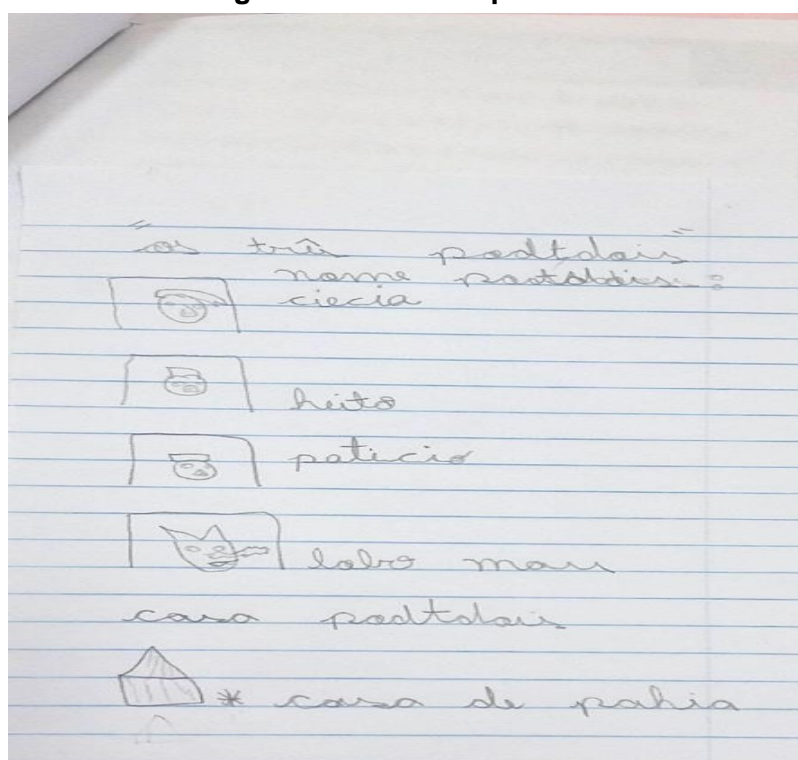 "os três podtdais"
nome podtddis:
ciecia
heito
paticio
lobo mau
casa podtdais
* casa de pahia